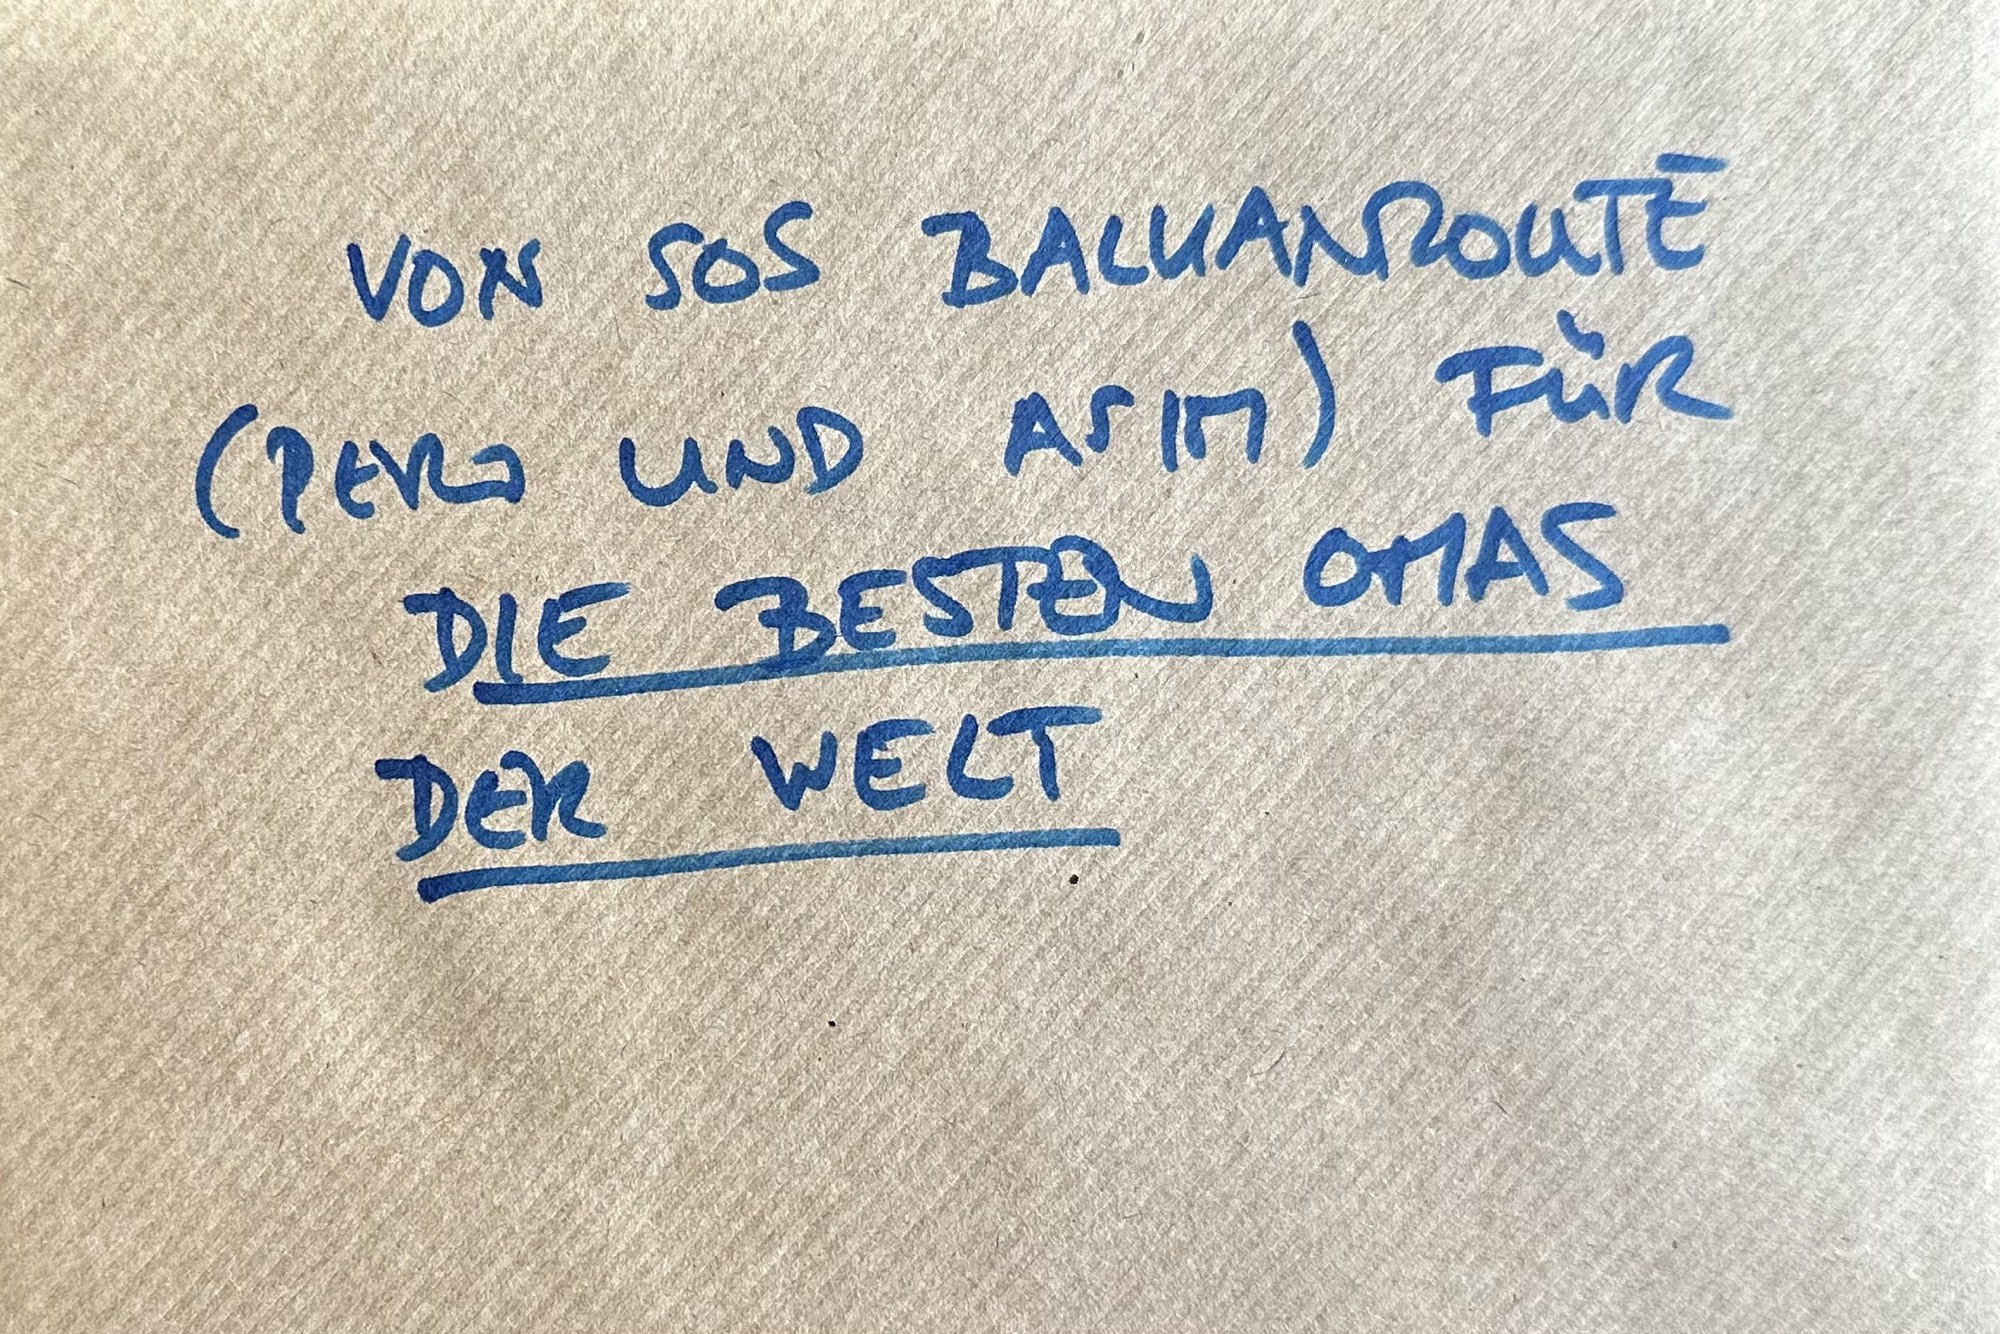 VON SOS BALKANROUTE
(PERO UND ASIM) FÜR
DIE BESTEN OMAS
DER WELT